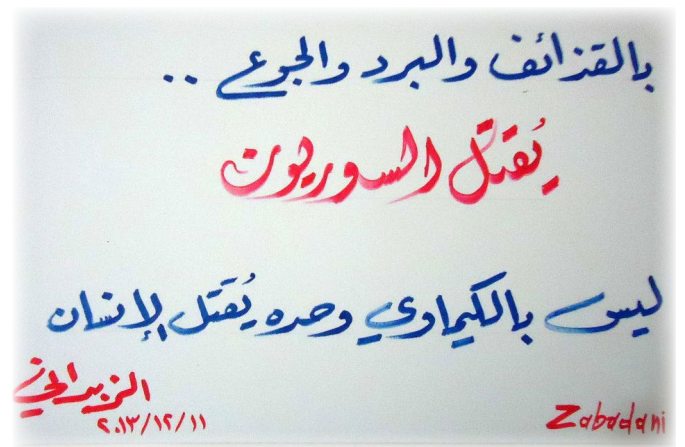 بالقذائف والبرد والجوع ..
يُقتل السوريون
ليس بالكيماوي وحده يُقتل الإنسان
الزبداني
Zabadani
٢٠١٣/١٢/١١